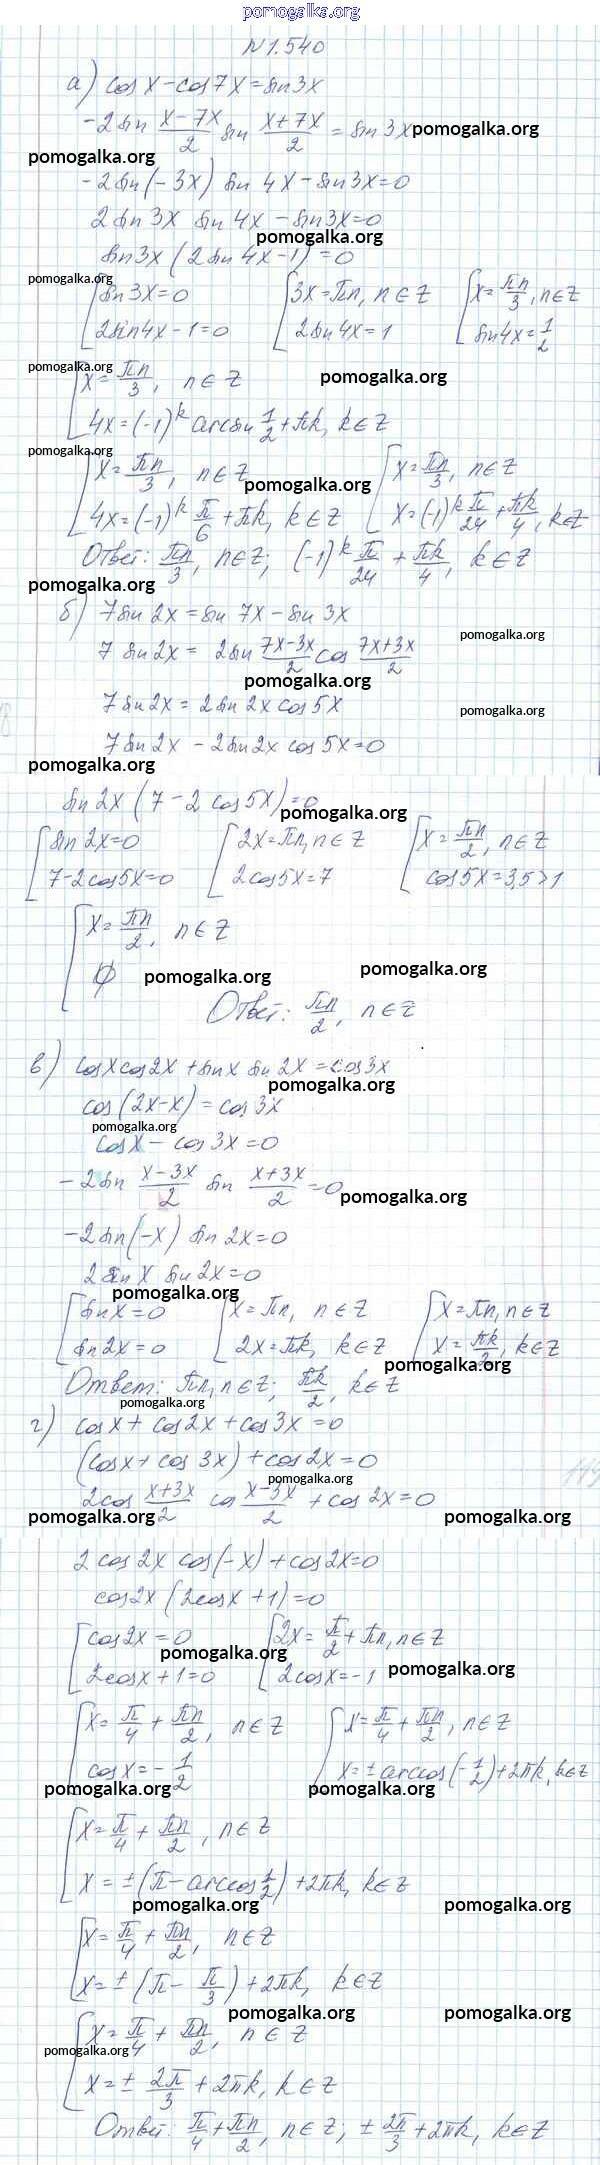 pomogalka.org
N 1.540
а) cos x - cos 7x = sin 3x
-2 sin (x-7x)/2 sin (x+7x)/2 = sin 3x pomogalka.org
pomogalka.org
-2 sin(-3x) sin 4x - sin 3x = 0
2 sin 3x sin 4x - sin 3x = 0
pomogalka.org
sin 3x (2 sin 4x - 1) = 0
pomogalka.org
[ sin 3x = 0 [ 3x = πn, n ∈ Z [ x = πn/3, n ∈ Z
2 sin 4x - 1 = 0 2 sin 4x = 1 sin 4x = 1/2
pomogalka.org
[ x = πn/3, n ∈ Z pomogalka.org
4x = (-1)^k arcsin 1/2 + πk, k ∈ Z
pomogalka.org
[ x = πn/3, n ∈ Z pomogalka.org [ x = πn/3, n ∈ Z
4x = (-1)^k π/6 + πk, k ∈ Z x = (-1)^k π/24 + πk/4, k ∈ Z
Ответ: πn/3, n ∈ Z; (-1)^k π/24 + πk/4, k ∈ Z
pomogalka.org
б) 7 sin 2x = sin 7x - sin 3x
pomogalka.org
7 sin 2x = 2 sin (7x-3x)/2 cos (7x+3x)/2
pomogalka.org
7 sin 2x = 2 sin 2x cos 5x pomogalka.org
7 sin 2x - 2 sin 2x cos 5x = 0
pomogalka.org
sin 2x (7 - 2 cos 5x) = 0
pomogalka.org
[ sin 2x = 0 [ 2x = πn, n ∈ Z [ x = πn/2, n ∈ Z
7 - 2 cos 5x = 0 2 cos 5x = 7 cos 5x = 3,5 > 1
[ x = πn/2, n ∈ Z
∅ pomogalka.org pomogalka.org
Ответ: πn/2, n ∈ Z
в) cos x cos 2x + sin x sin 2x = cos 3x
pomogalka.org
cos (2x - x) = cos 3x
pomogalka.org
cos x - cos 3x = 0
-2 sin (x-3x)/2 sin (x+3x)/2 = 0 pomogalka.org
-2 sin(-x) sin 2x = 0
2 sin x sin 2x = 0
pomogalka.org pomogalka.org
[ sin x = 0 [ x = πn, n ∈ Z [ x = πn, n ∈ Z
sin 2x = 0 2x = πk, k ∈ Z x = πk/2, k ∈ Z
pomogalka.org
Ответ: πn, n ∈ Z; πk/2, k ∈ Z
pomogalka.org
г) cos x + cos 2x + cos 3x = 0
(cos x + cos 3x) + cos 2x = 0
pomogalka.org
2 cos (x+3x)/2 cos (x-3x)/2 + cos 2x = 0
pomogalka.org pomogalka.org
2 cos 2x cos(-x) + cos 2x = 0
cos 2x (2 cos x + 1) = 0
[ cos 2x = 0 [ 2x = π/2 + πn, n ∈ Z
pomogalka.org pomogalka.org
2 cos x + 1 = 0 2 cos x = -1
[ x = π/4 + πn/2, n ∈ Z [ x = π/4 + πn/2, n ∈ Z
cos x = -1/2 x = ± arccos(-1/2) + 2πk, k ∈ Z
pomogalka.org pomogalka.org
[ x = π/4 + πn/2, n ∈ Z
x = ± (π - arccos 1/2) + 2πk, k ∈ Z
pomogalka.org pomogalka.org
[ x = π/4 + πn/2, n ∈ Z
x = ± (π - π/3) + 2πk, k ∈ Z
pomogalka.org pomogalka.org
[ x = π/4 + πn/2, n ∈ Z
pomogalka.org
x = ± 2π/3 + 2πk, k ∈ Z
Ответ: π/4 + πn/2, n ∈ Z; ± 2π/3 + 2πk, k ∈ Z